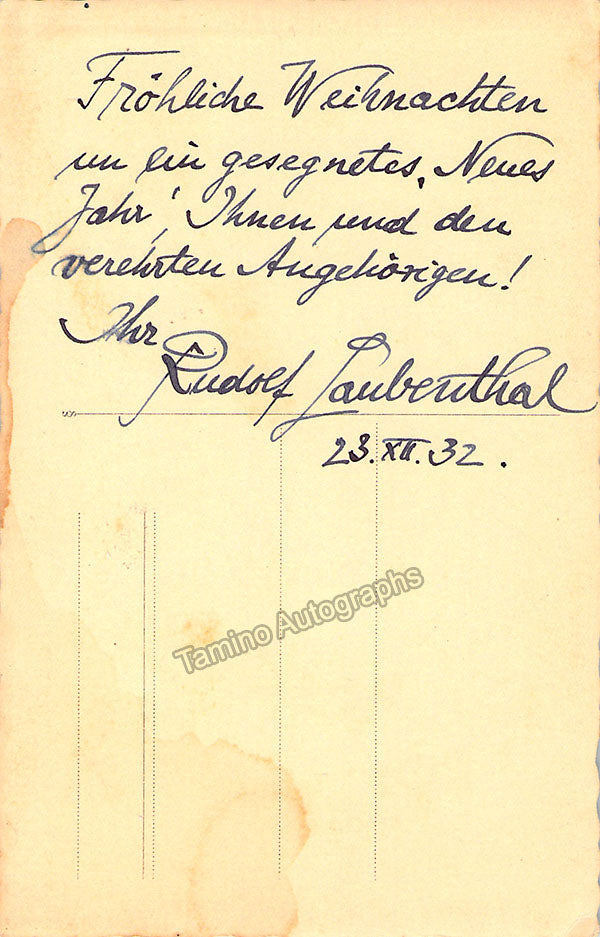 Fröhliche Weihnachten
un ein gesegnetes, Neues
Jahr! Ihnen und den
verehrten Angehörigen!
Ihr
Rudolf Laubenthal
23.XII.32.
Tamino Autographs